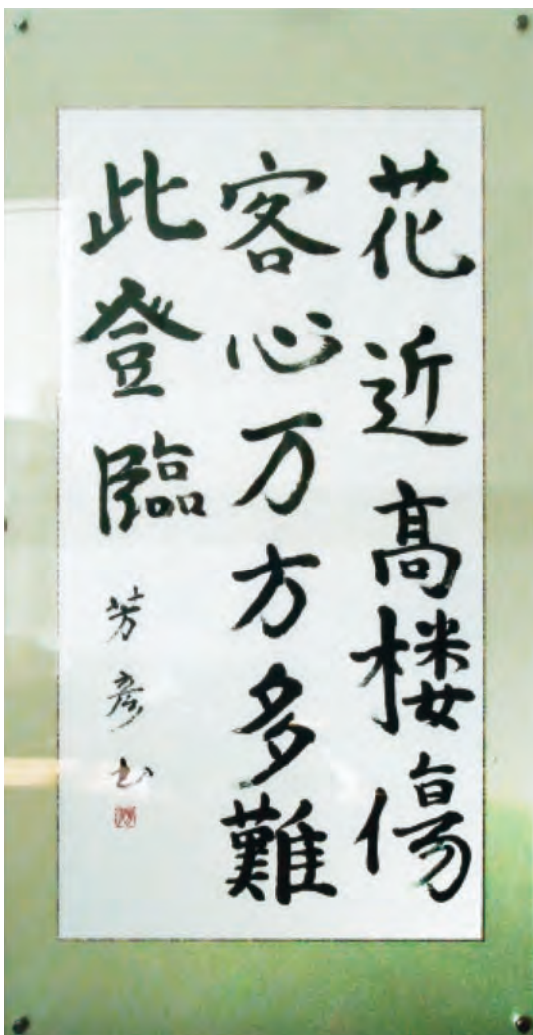 花近高楼傷
客心万方多難
此登臨
芳彦书